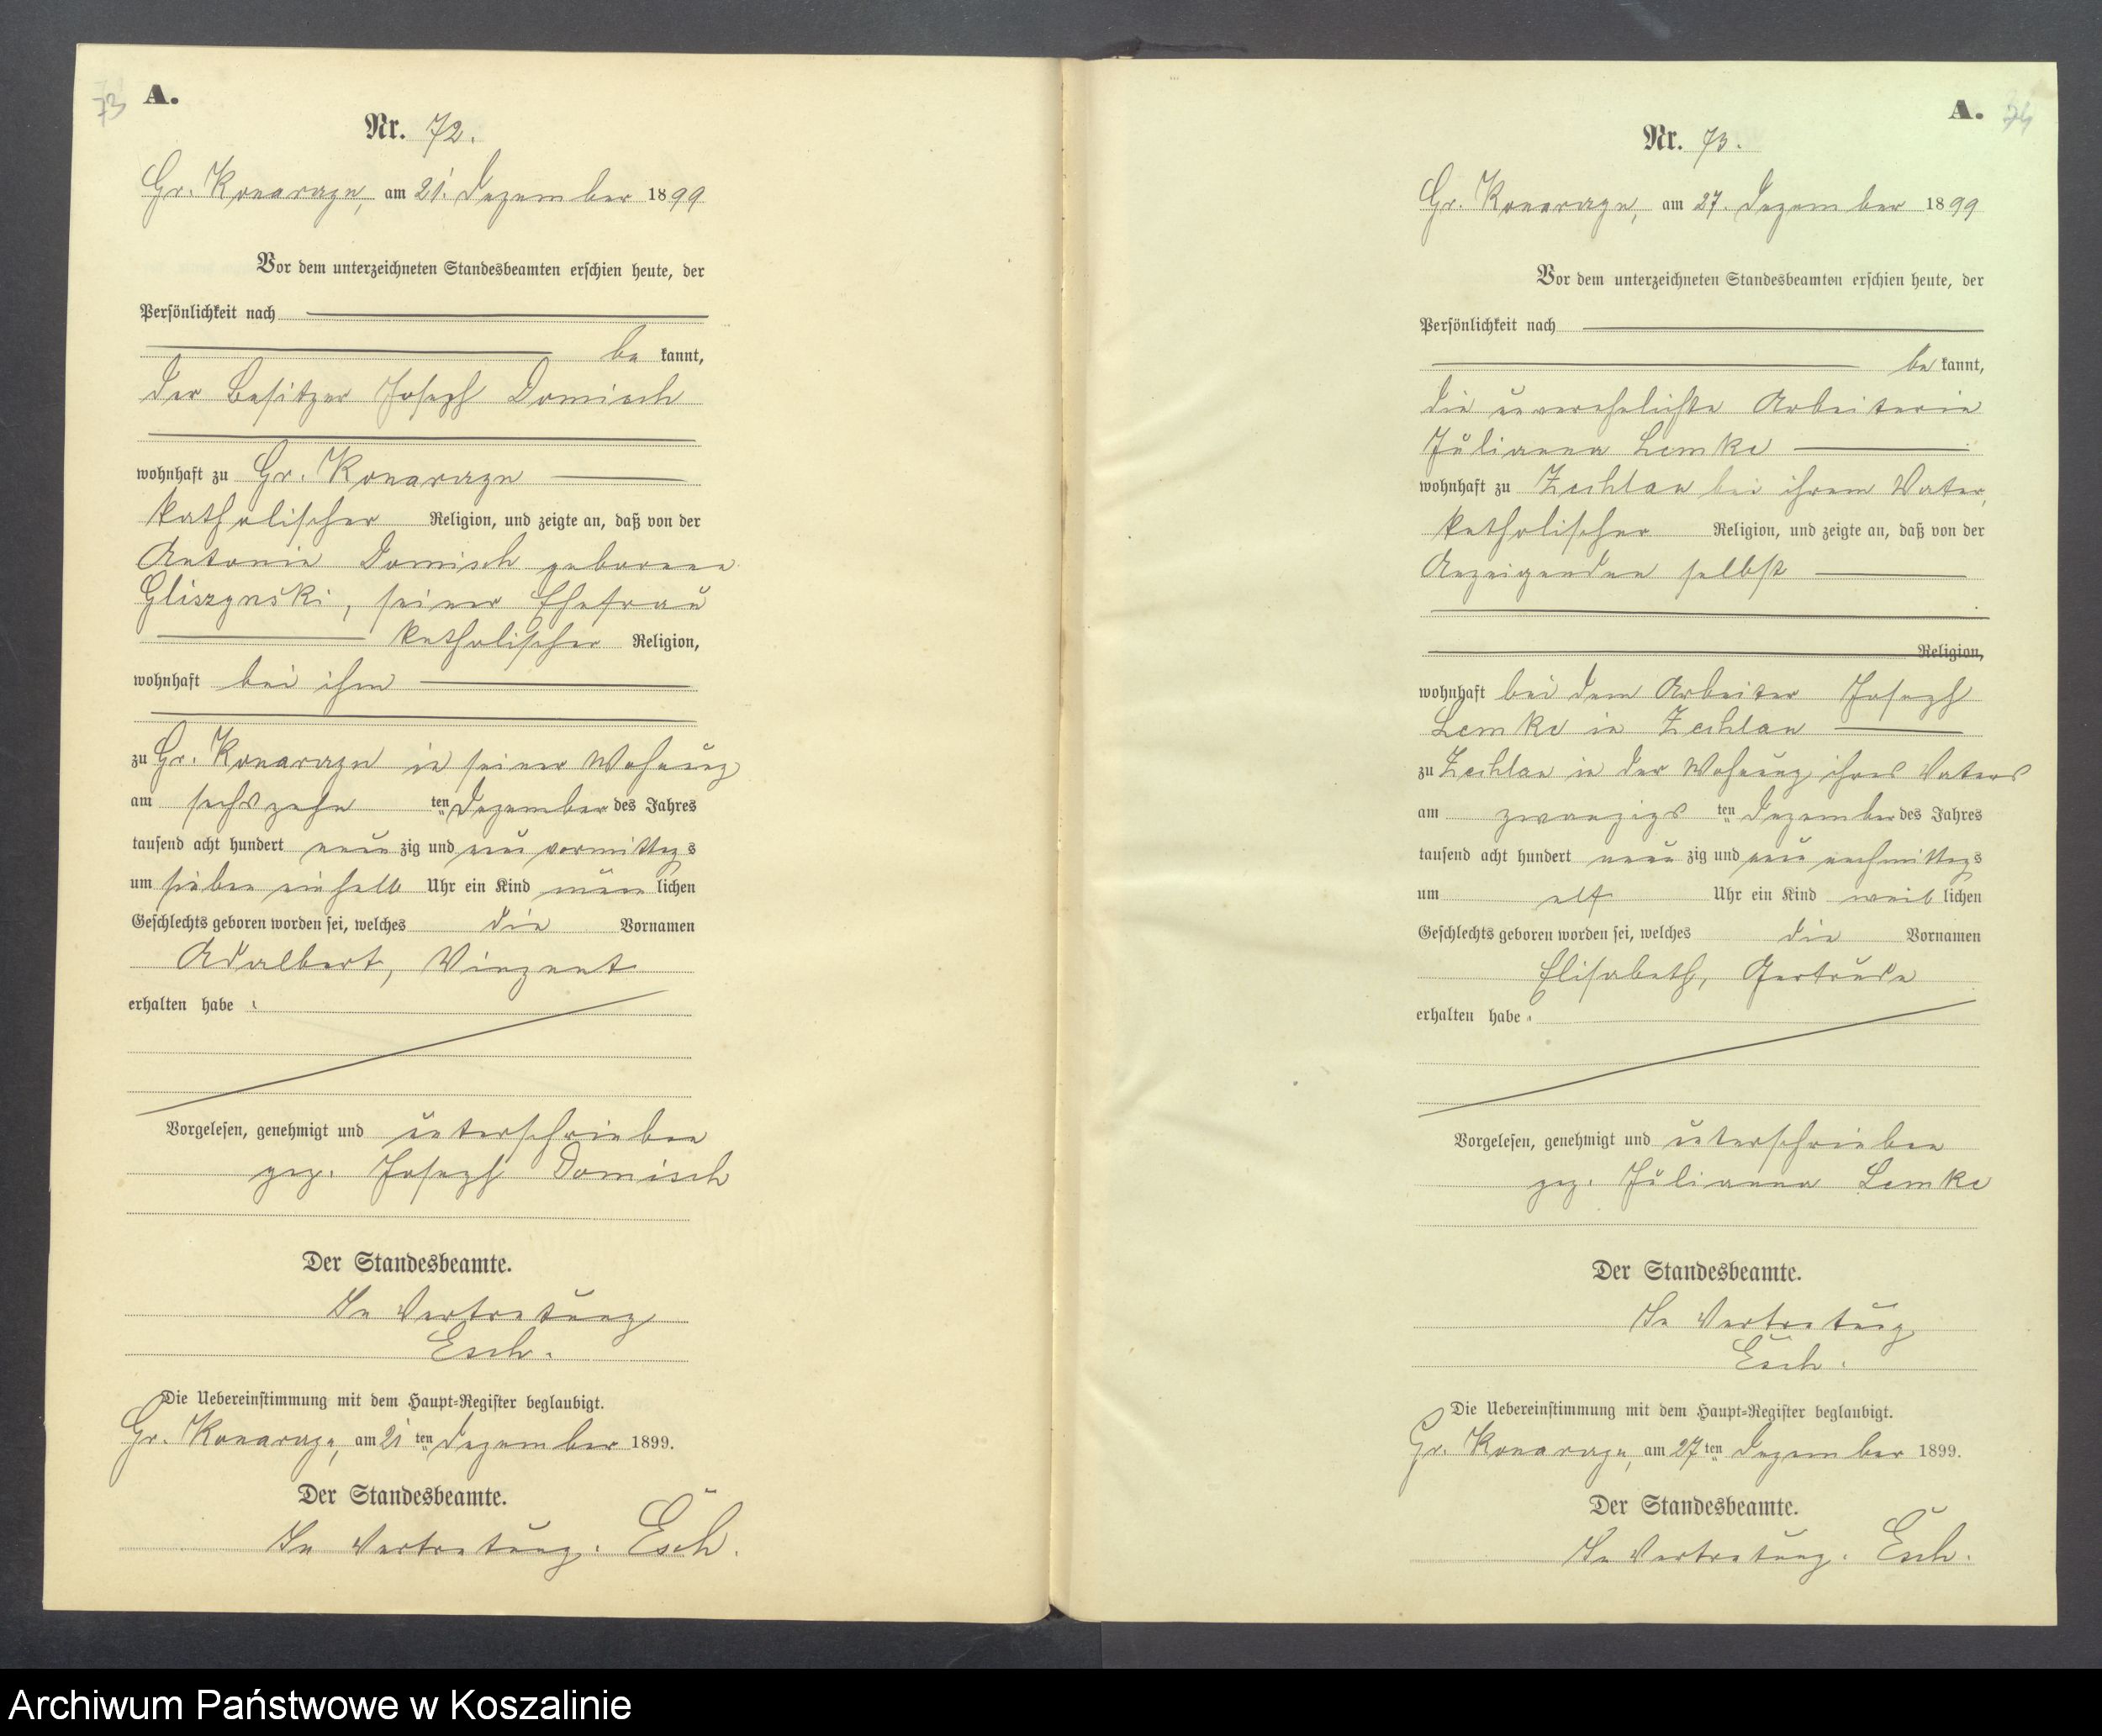 73 A.
Nr. 72.
Gr. Konarzyn, am 21. Dezember 1899
Vor dem unterzeichneten Standesbeamten erschien heute, der
Persönlichkeit nach
be kannt,
der Besitzer Joseph Domisch
wohnhaft zu Gr. Konarzyn
katholischer Religion, und zeigte an, daß von der
Antonie Domisch geborene
Gliszynski, seiner Ehefrau
katholischer Religion,
wohnhaft bei ihm
zu Gr. Konarzyn in seiner Wohnung
am sechszehn ten Dezember des Jahres
tausend acht hundert neun zig und neun vormittags
um sieben ein halb Uhr ein Kind män lichen
Geschlechts geboren worden sei, welches die Vornamen
Adalbert, Vinzent
erhalten habe
Vorgelesen, genehmigt und unterschrieben
gez. Joseph Domisch
Der Standesbeamte.
In Vertretung
Esch.
Die Uebereinstimmung mit dem Haupt-Register beglaubigt.
Gr. Konarzyn, am 21 ten Dezember 1899.
Der Standesbeamte.
In Vertretung. Esch.
A. 74
Nr. 73.
Gr. Konarzyn, am 27. Dezember 1899
Vor dem unterzeichneten Standesbeamten erschien heute, der
Persönlichkeit nach
be kannt,
die unverehelichte Arbeiterin
Julianna Lemke
wohnhaft zu Zechlau bei ihrem Vater,
katholischer Religion, und zeigte an, daß von der
Anzeigenden selbst
Religion,
wohnhaft bei dem Arbeiter Joseph
Lemke in Zechlau
zu Zechlau in der Wohnung ihres Vaters
am zwanzigs ten Dezember des Jahres
tausend acht hundert neun zig und neun nachmittags
um elf Uhr ein Kind weib lichen
Geschlechts geboren worden sei, welches die Vornamen
Elisabeth, Gertrude
erhalten habe
Vorgelesen, genehmigt und unterschrieben
gez. Julianna Lemke
Der Standesbeamte.
In Vertretung
Esch.
Die Uebereinstimmung mit dem Haupt-Register beglaubigt.
Gr. Konarzyn, am 27 ten Dezember 1899.
Der Standesbeamte.
In Vertretung. Esch.
Archiwum Państwowe w Koszalinie